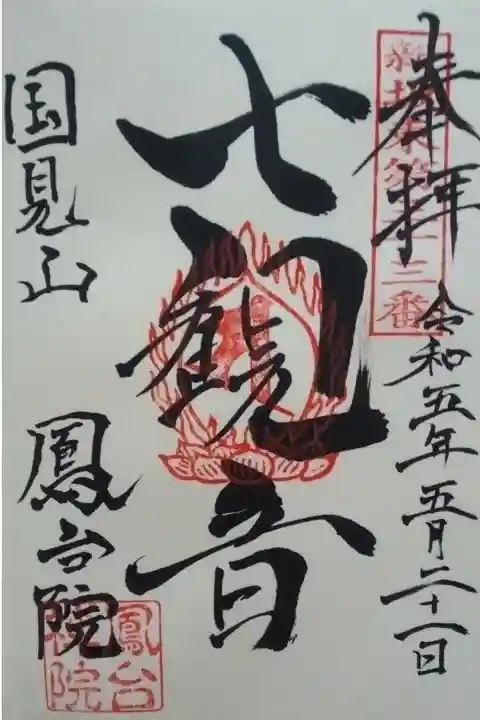 奉拝
令和五年五月二十一日
三番
七観音
国見山
鳳台院
鳳台
院